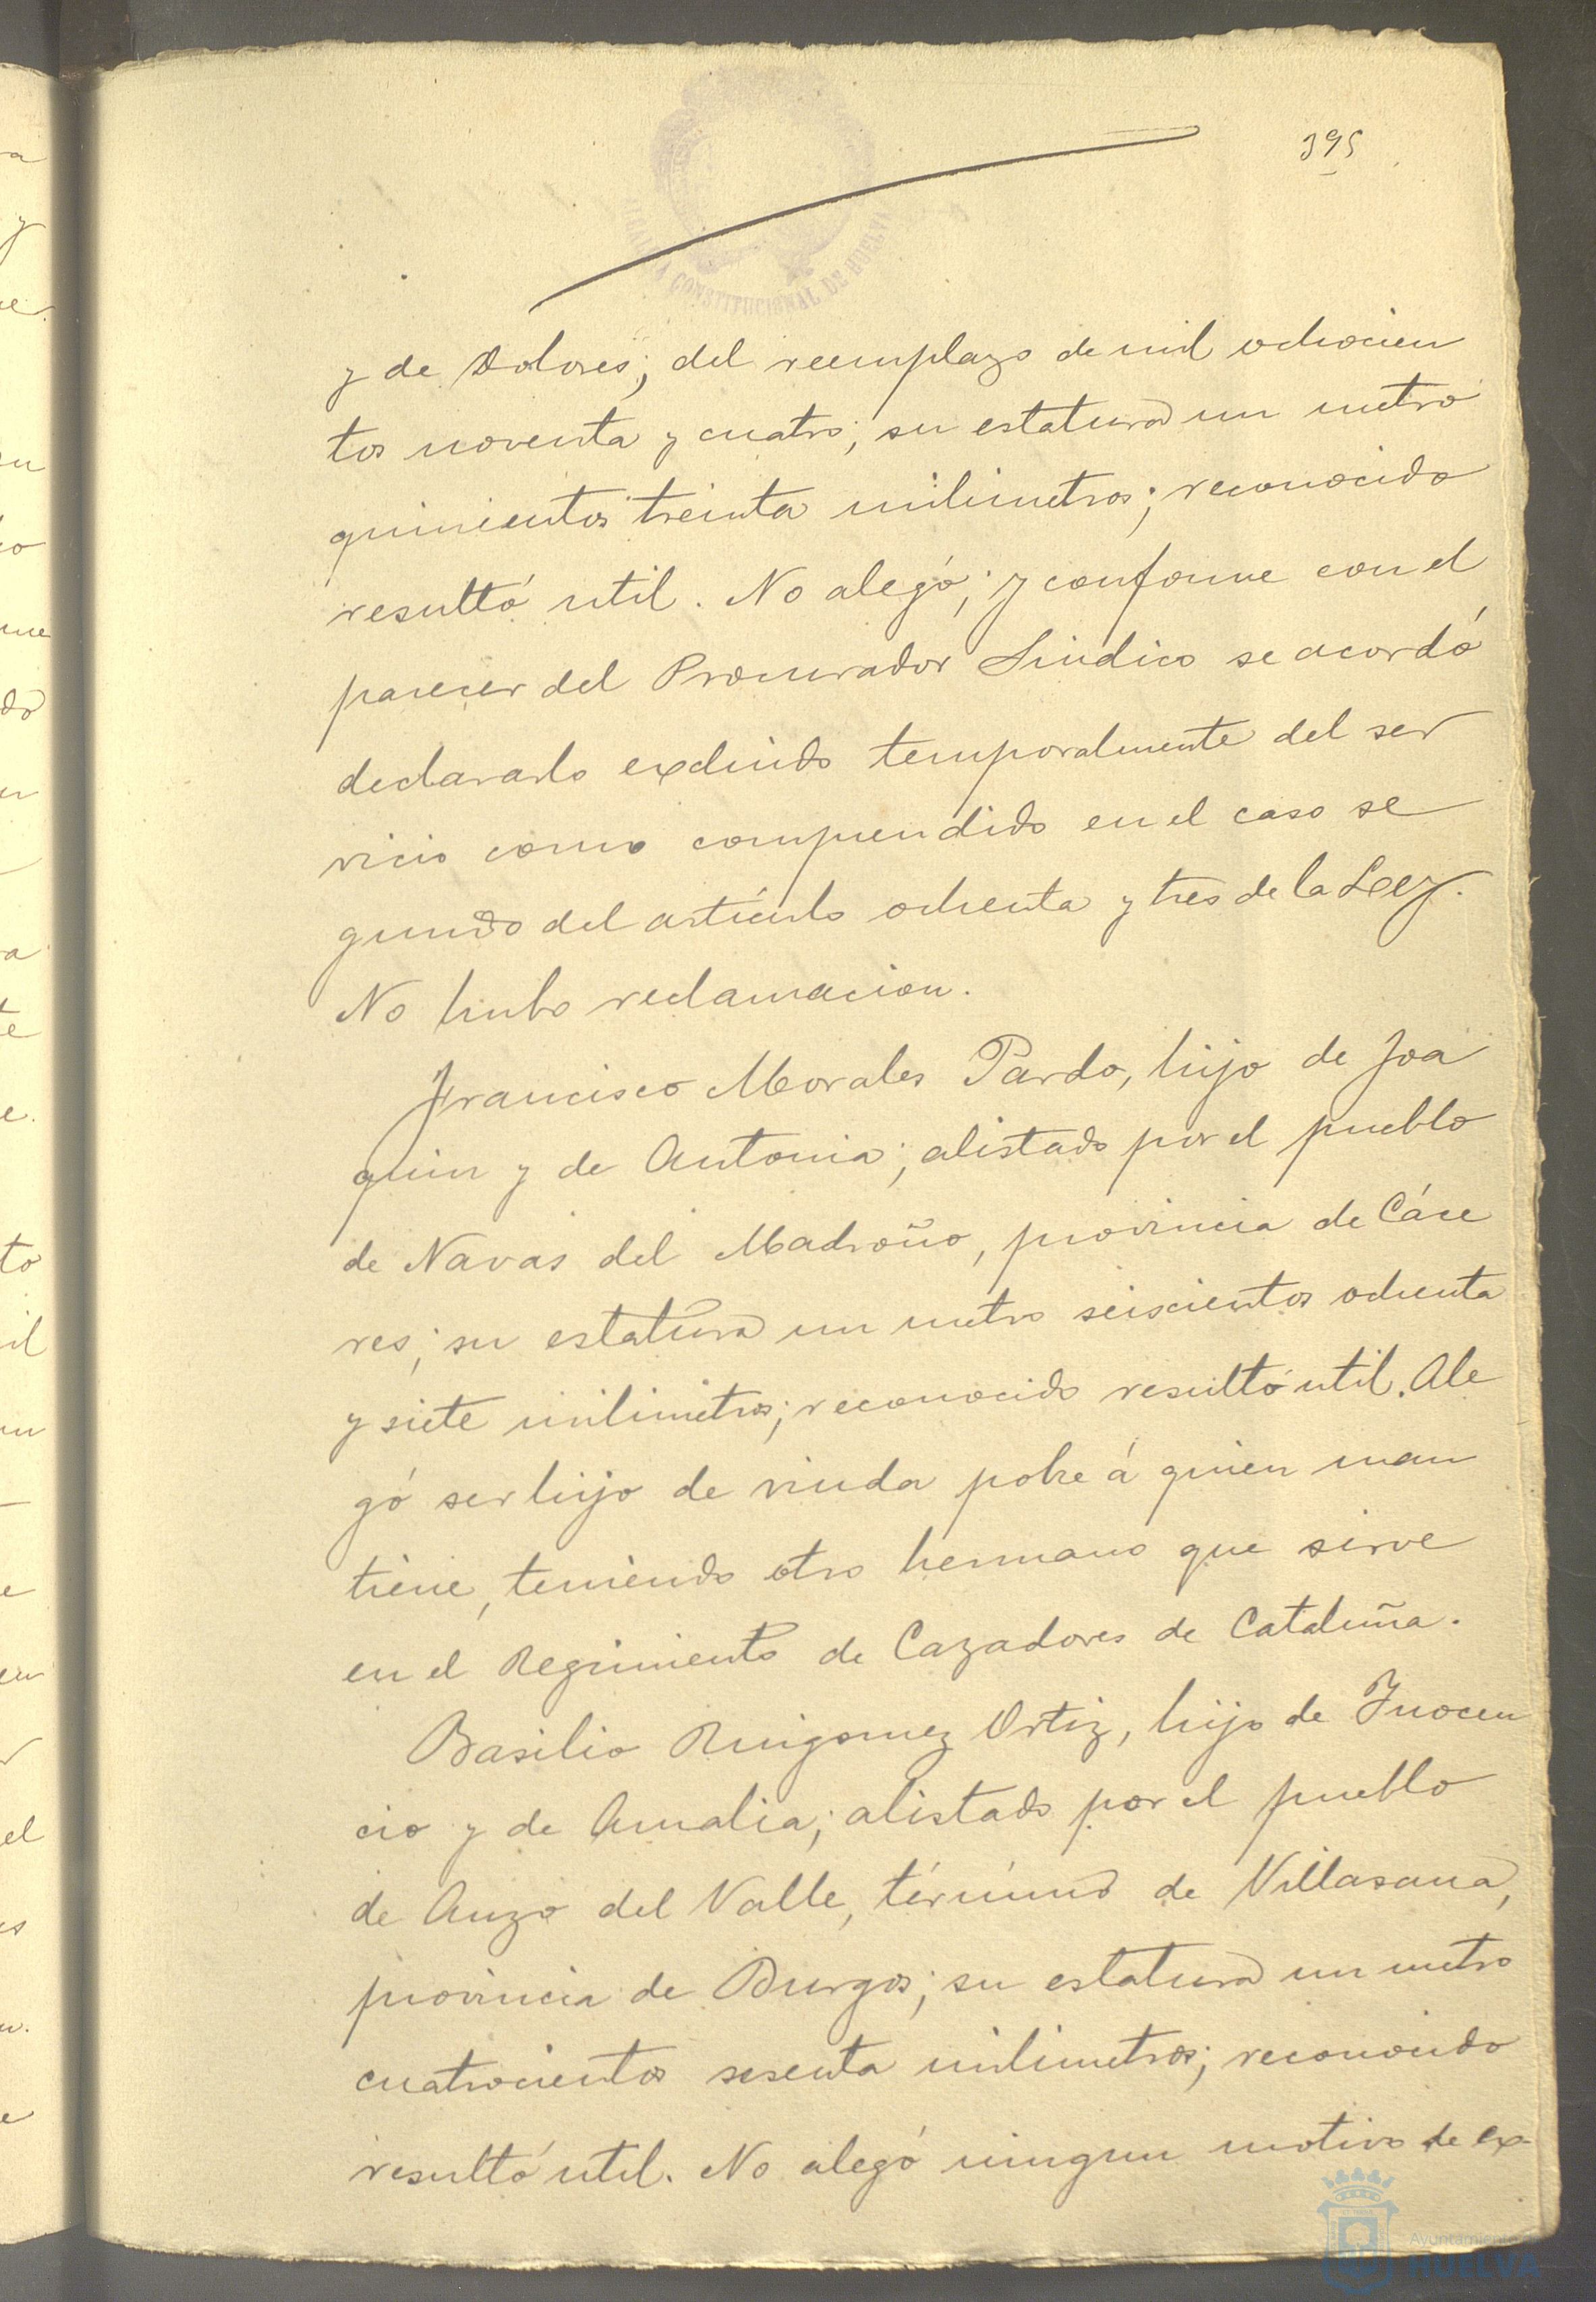 395
ALCALDIA CONSTITUCIONAL DE HUELVA
y de Dolores; del reemplazo de mil ochocien
tos noventa y cuatro; su estatura un metro
quinientos treinta milimetros; reconocido
resultó util. No alegó; y conforme con el
parecer del Procurador Sindico se acordó
declararlo excluido temporalmente del ser
vicio como comprendido en el caso se
gundo del artículo ochenta y tres de la Ley.
No hubo reclamacion.
Francisco Morales Pardo, hijo de Joa
quin y de Antonia; alistado por el pueblo
de Navas del Madroño, provincia de Cáce
res; su estatura un metro seiscientos ochenta
y siete milimetros; reconocido resultó util. Ale
gó ser hijo de viuda pobre á quien man
tiene, teniendo otro hermano que sirve
en el Regimiento de Cazadores de Cataluña.
Basilio Ruigomez Ortiz, hijo de Inocen
cio y de Amalia; alistado por el pueblo
de Anzo del Valle, término de Villasana,
provincia de Burgos; su estatura un metro
cuatrocientos sesenta milimetros; reconocido
resultó util. No alegó ningun motivo de ex-
Ayuntamiento
HUELVA